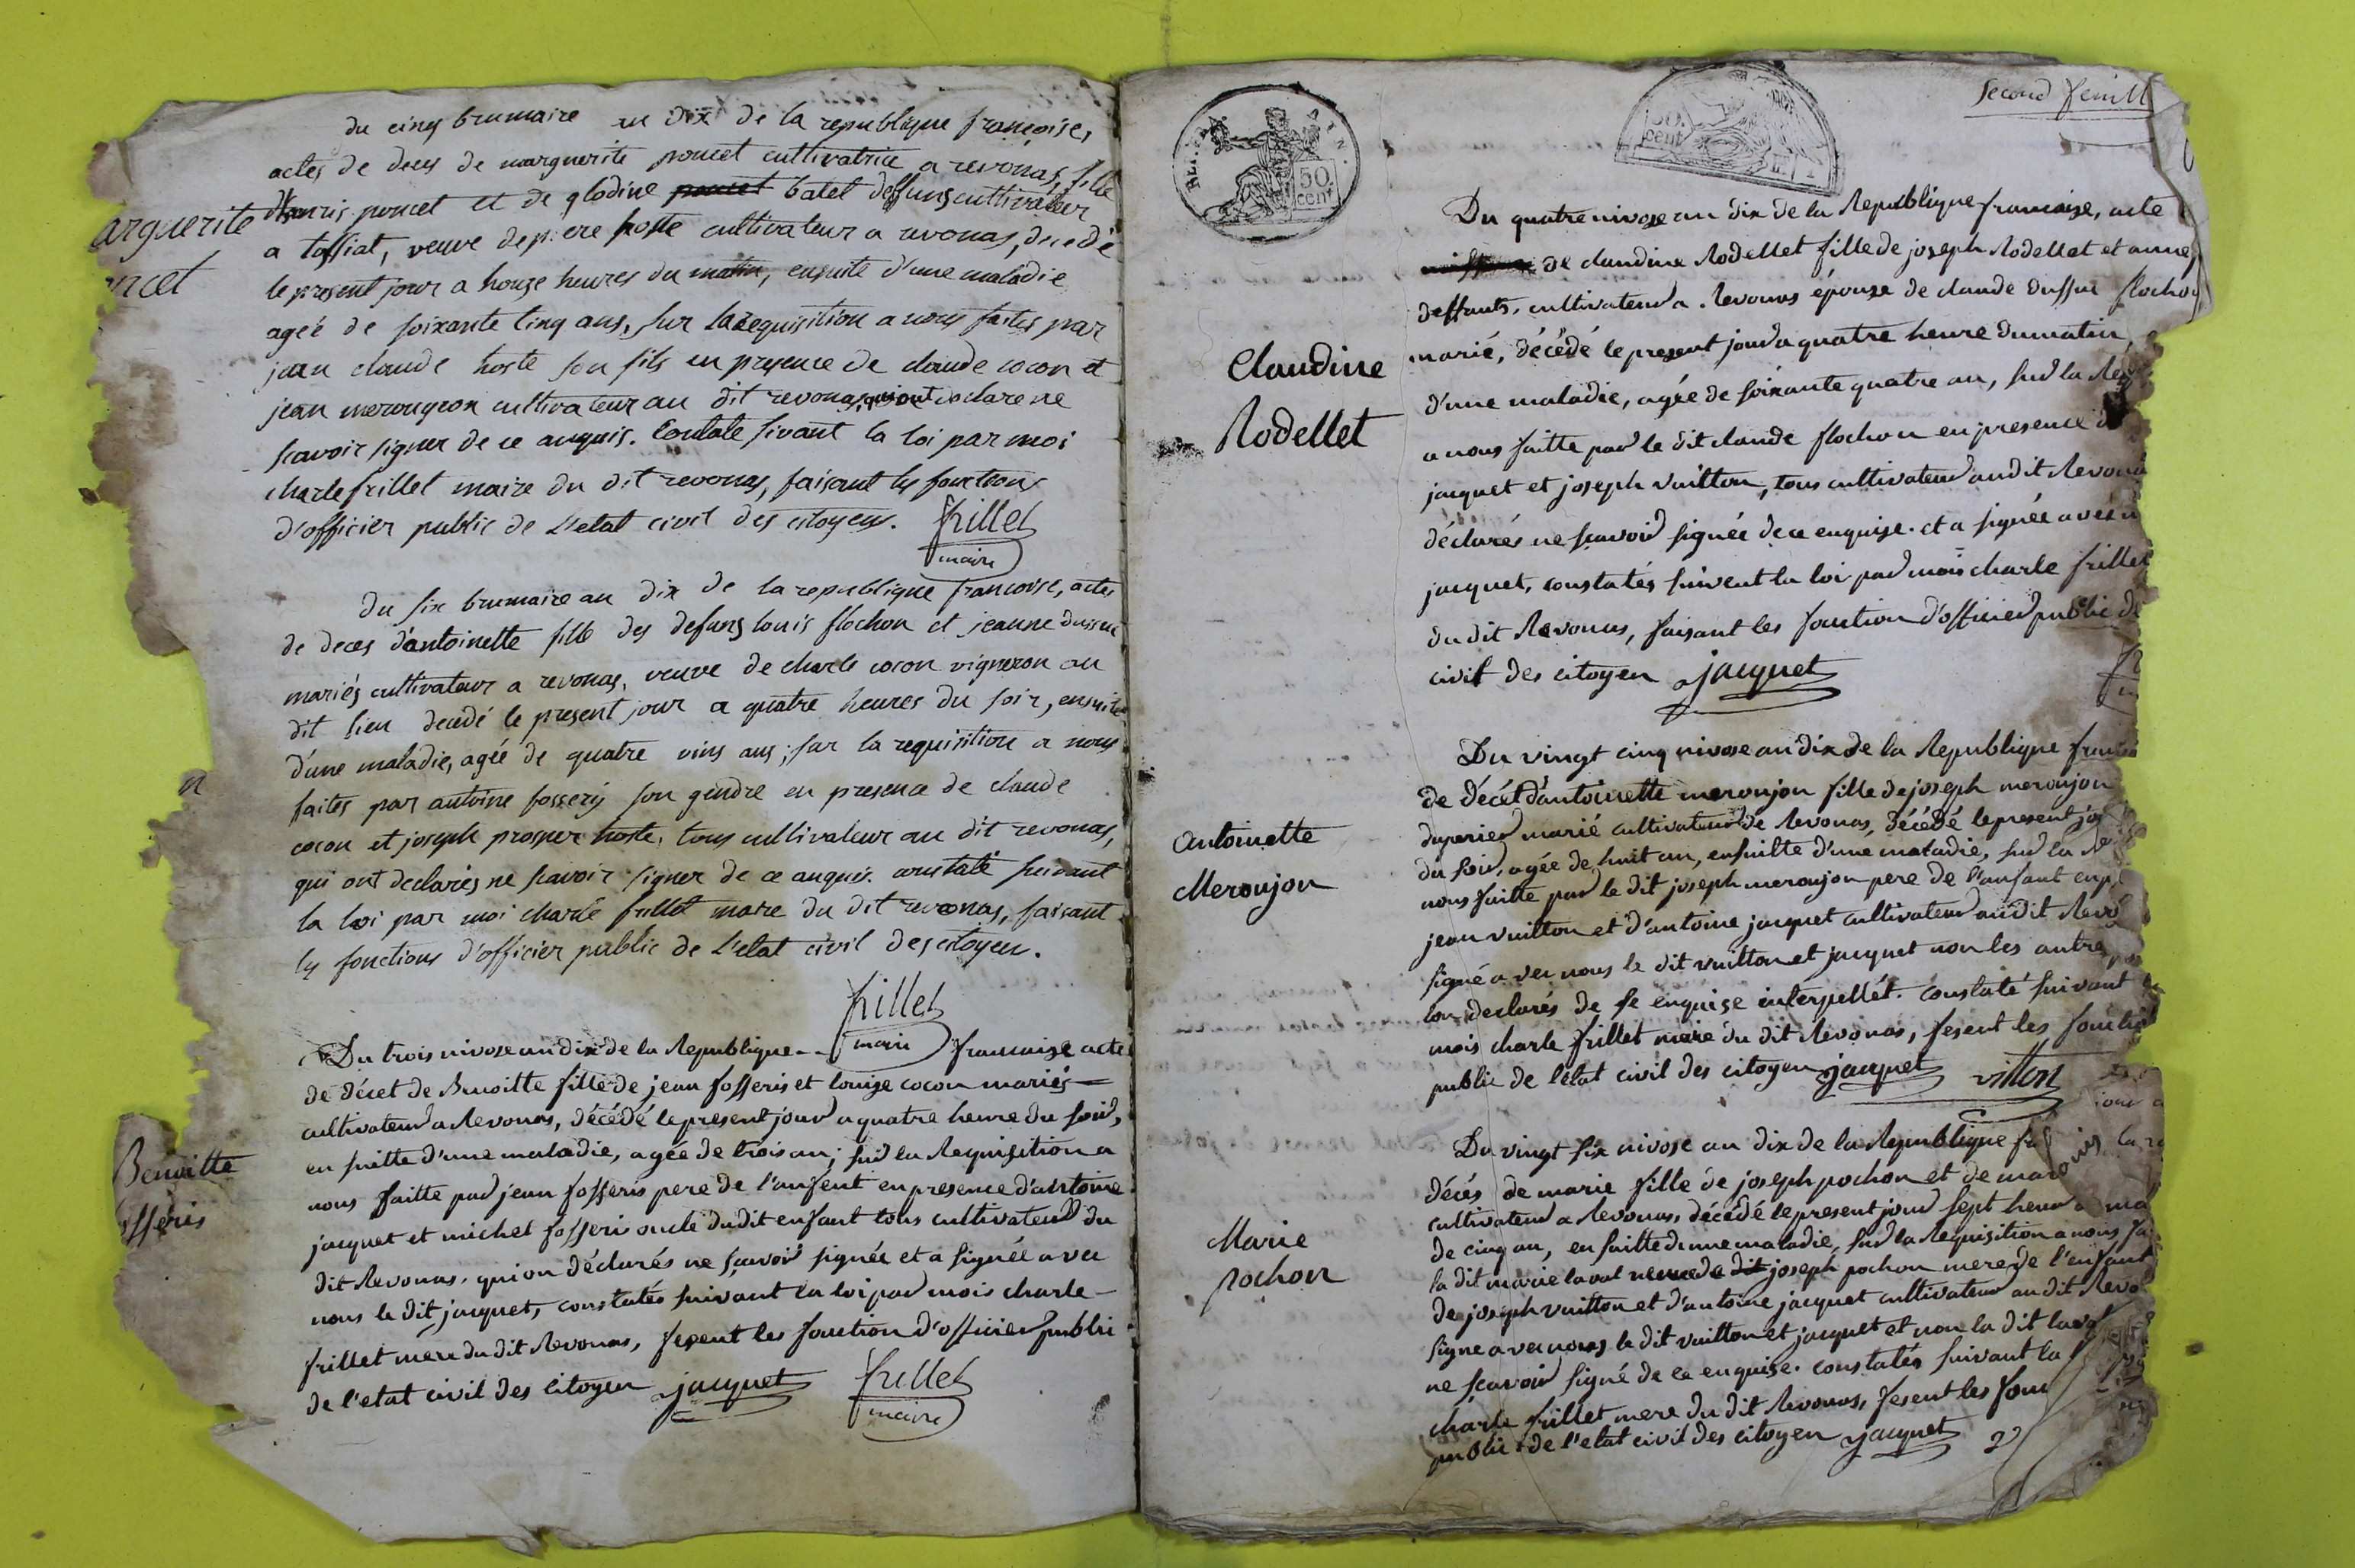 du cinq brumaire an dix de la republique françoise,
actes de deces de marguerite poncet cultivatrice a revonas, fille
arguerite
ncet
denris poncet et de glodine batel deffuns cultivateur
a tossiat, veuve de piere hoste cultivateur a revonas, decedé
le present jour a honze heures du matin, ensuite d'une maladie
ageé de soixante cinq ans, sur la requisition a nous faites par
jean claude hoste son fils en presence de claude cocon et
jean merongeon cultivateur au dit revonas, qui ont declare ne
scavoir signer de ce anquis. Contate sivant la loi par moi
charle frillet maire du dit revonas, faisant les fonctions
d'officier public de L'etat civil des citoyens. frillet
maire
du six brumaire an dix de la republique francoise, actes
de deces d'antoinette fille des defuns louis flochon et jeanne dussuc
mariés cultivateur a revonas, veuve de charle cocon vigneron au
dit lieu decedé le present jour a quatre heures du soir, ensuite
d'une maladie, agée de quatre vins ans, sur la requisition a nous
n
faites par antoine fosseris son gendre en presence de claude
cocon et joseph prosper hoste, tous cultivateur au dit revonas,
qui ont declarés ne scavoir signer de ce anquis. constaté suivant
la loi par moi charle frillet maire du dit revonas, faisant
les fonctions d'officier public de L'etat civil des citoyen.
frillet
maire
Du trois nivose an dix de la Republique francaise acte
de décet de Benoitte fille de jean fosseris et louise cocon mariés
cultivateur a Revonas, décédé le present jour a quatre heure du soir,
Benoitte
sseris
en suitte d'une maladie, agée de trois an, sur la Requisition a
nous faitte par jean fosseris pere de l'anfent en presence d'antoine
jacquet et michel fosseri oncle dudit enfant tous cultivateur du
dit Revonas, qui on déclarés ne scavoir signée et a signée avec
nous le dit jacquet, constatés suivant la loi par mois charle
frillet mere du dit Revonas, fesent les fonction d'officier publi
de l'etat civil des citoyen jacquet frillet
maire
BEL
TIN.
50
cent
50.
cent
second feuill
Claudine
Rodellet
Du quatre nivose an dix de la Republique francaise, acte
de claudine Rodellet fille de joseph Rodellet et anne
deffunts, cultivateur a Revonas épouse de claude dussuc flochon
marié, décédé le present jour a quatre heure du matin,
d'une maladie, agée de soixante quatre an, sur la Req
a nous faitte par le dit claude flochon en presence d
jacquet et joseph vuitton, tous cultivateur audit Revona
déclarés ne scavoir signée de ce enquise. et a signée avec n
jacquet, constatés suivent la loi par mois charle frillet
du dit Revonas, faisant les fonction d'officier public de
civil des citoyen jacquet
Antoinette
Meronjon
Du vingt cinq nivose an dix de la Republique francai
de décét d'antoinette meronjon fille de joseph meronjon
duperier marié cultivateur de Revonas, décédé le present jo
du soir, agée de huit an, ensuitte d'une maladie, sur la Re
nous faitte par le dit joseph meronjon pere de l'anfant enp
jean vuitton et d'antoine jacquet cultivateur audit Revo
signé avec nous le dit vuitton et jacquet non les autre
lon declarés de se enquise interpellét. constaté suivant
mois charle frillet mere du dit Revonas, fesent les foncti
public de l'état civil des citoyen jacquet vitton
Marie
pochon
Du vingt six nivose an dix de la Republique fra
décés de marie fille de joseph pochon et de mar
cultivateur a Revonas, décédé le present jour sept heur ma
de cinq an, en suitte d'unne maladie, sur la Requisition a nous fa
la dit marie laval joseph pochon mere de l'enfant
de joseph vuitton et d'antoine jacquet cultivateur au dit Revo
signe avec nous le dit vuitton et jacquet et non la dit laval
ne scavoir signé de ce enquise. constatés suivant la
charle frillet mere du dit Revonas, fesent les fonc
public de l'etat civil des citoyen jacquet